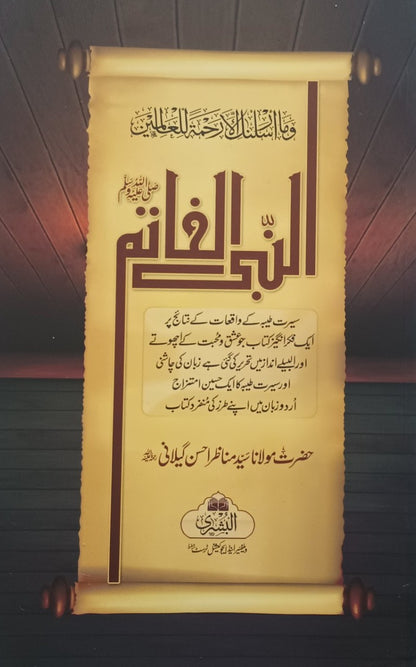 وَمَا أَرْسَلْنٰكَ إِلَّا رَحْمَةً لِّلْعَالَمِيْنَ
النّبی الخاتم صلی اللہ علیہ وسلم
سیرت طیبہ کے واقعات کے نتائج پر
ایک فکر انگیز کتاب جو عشق و محبت کے اچھوتے
اور البیلے انداز میں تحریر کی گئی ہے زبان کی چاشنی
اور سیرت طیبہ کا ایک حسین امتزاج
اُردو زبان میں اپنے طرز کی منفرد کتاب
حضرت مولانا سید مناظر احسن گیلانی رحمۃ اللہ علیہ
البشریٰ
ویلفیئر اینڈ ایجوکیشنل ٹرسٹ